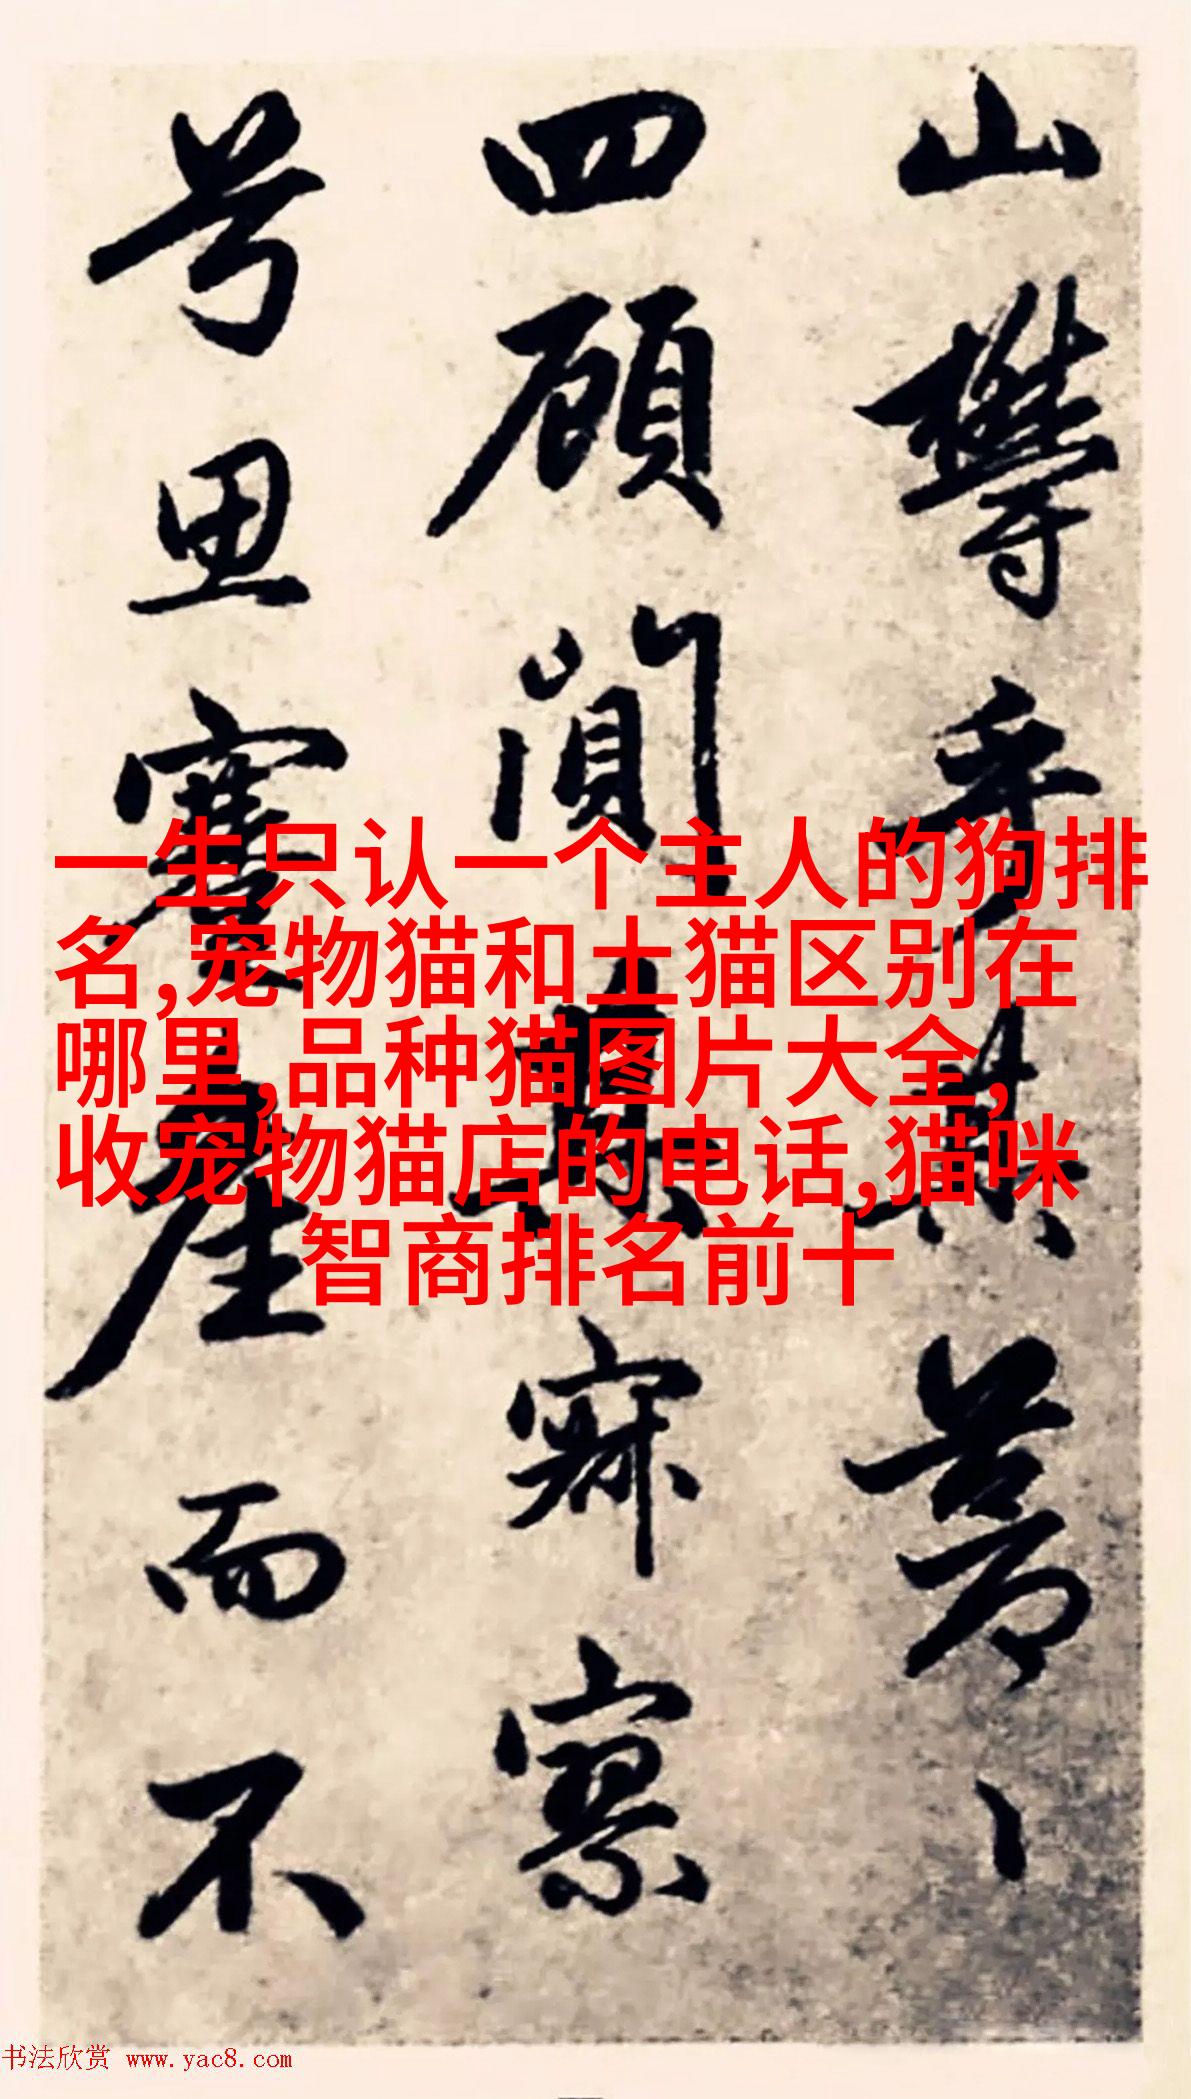 山欝乎其蒼々
四顧闃其寂寥
兮思蹇產而不
一生只认一个主人的狗排
名,宠物猫和土猫区别在
哪里,品种猫图片大全,
收宠物猫店的电话,猫咪
智商排名前十
书法欣赏 www.yac8.com